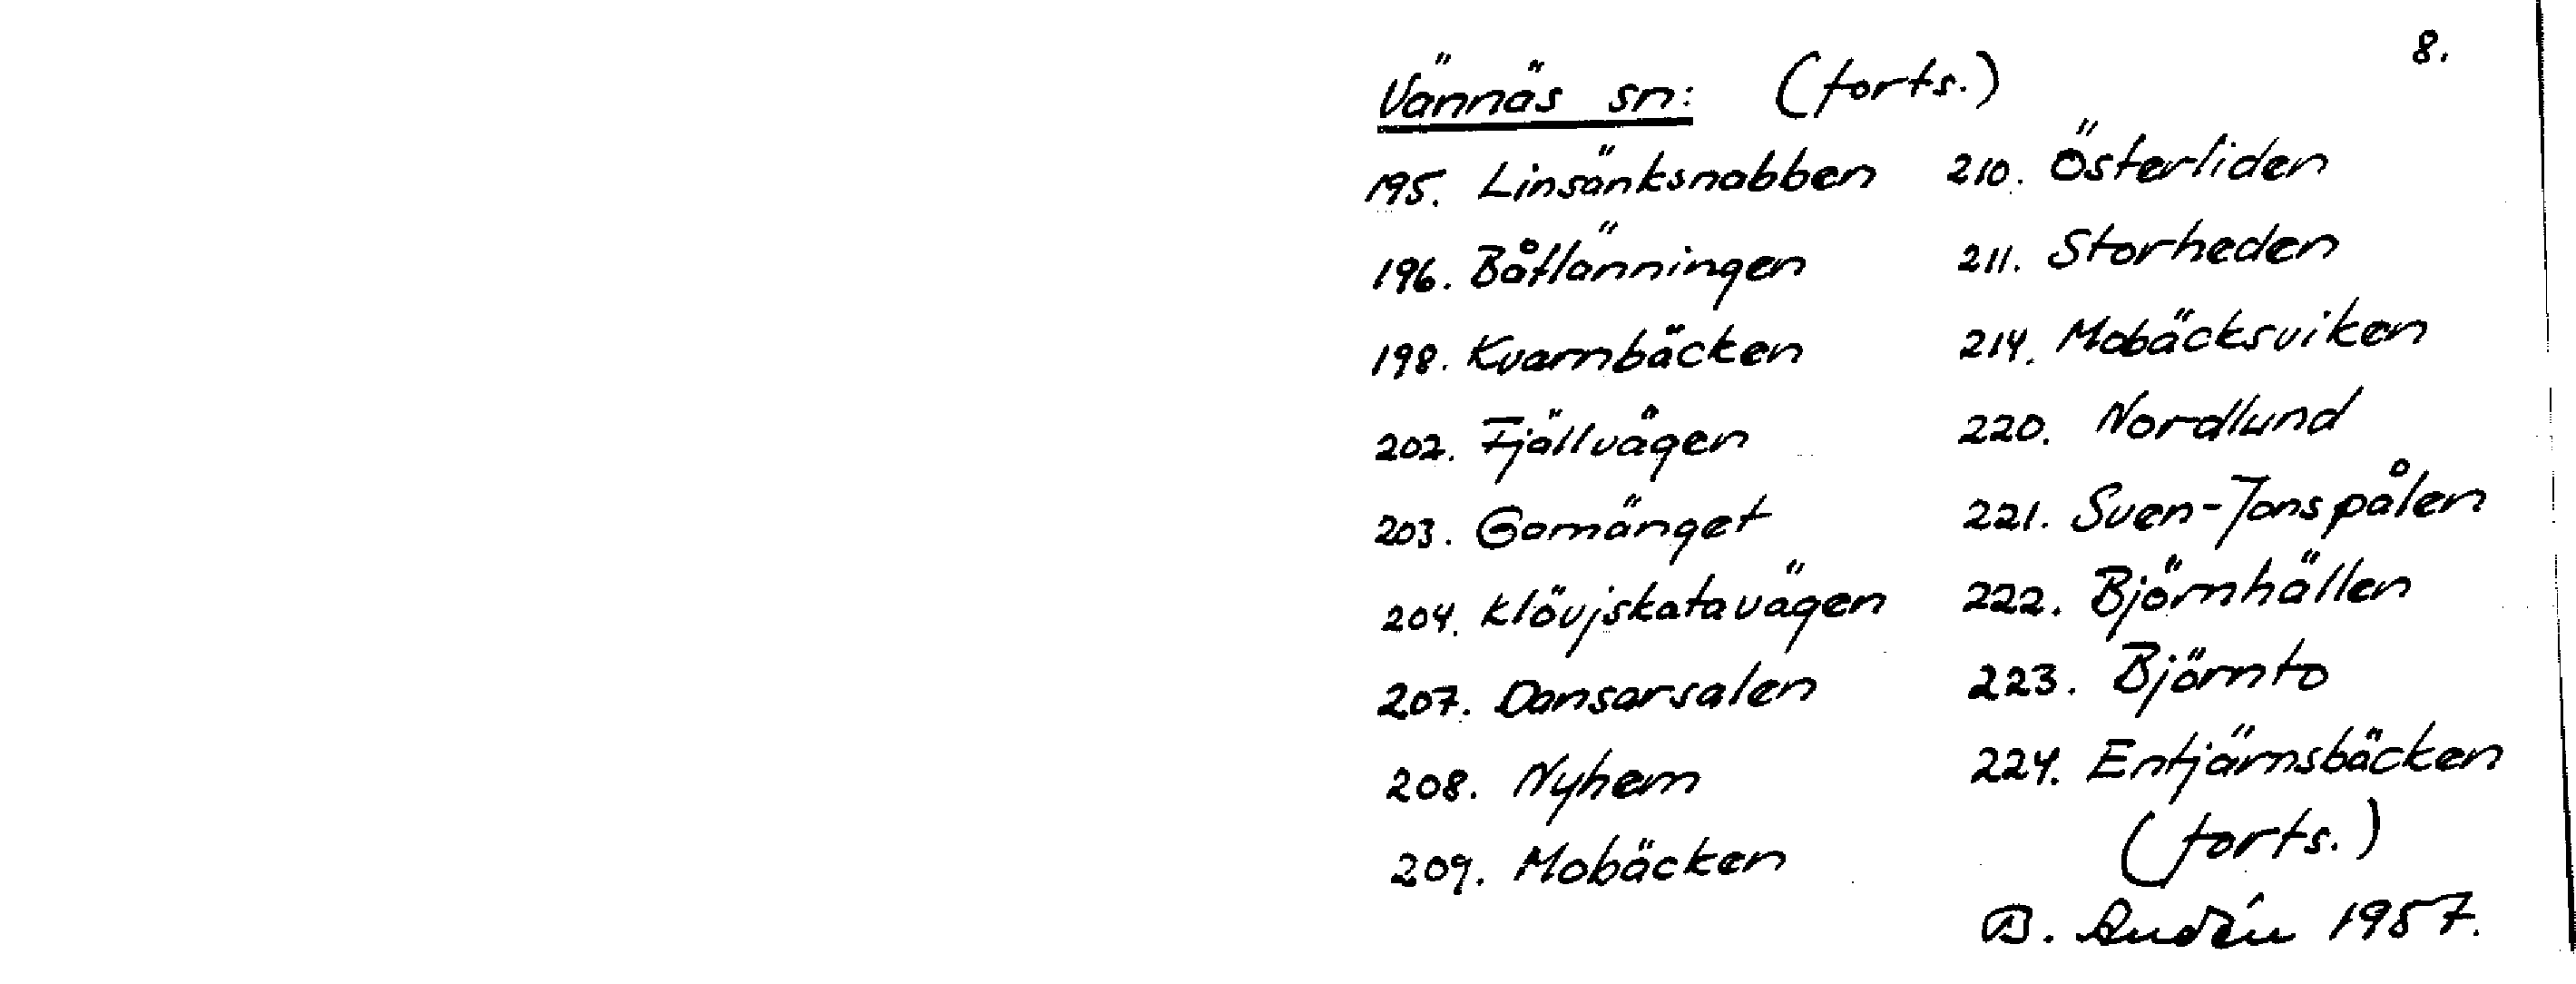 8.
Vännäs sn: (forts.)
195. Linsänksnabben
196. Båtlänningen
198. Kvarnbäcken
202. Fjällvägen
203. Gomänget
204. Klövjskatavägen
207. Dansarsalen
208. Nyhem
209. Mobäcken
210. Österliden
211. Storheden
214. Mobäcksviken
220. Nordlund
221. Sven-Jonspålen
222. Björnhällen
223. Björnto
224. Entjärnsbäcken
(forts.)
B. Audén 1957.